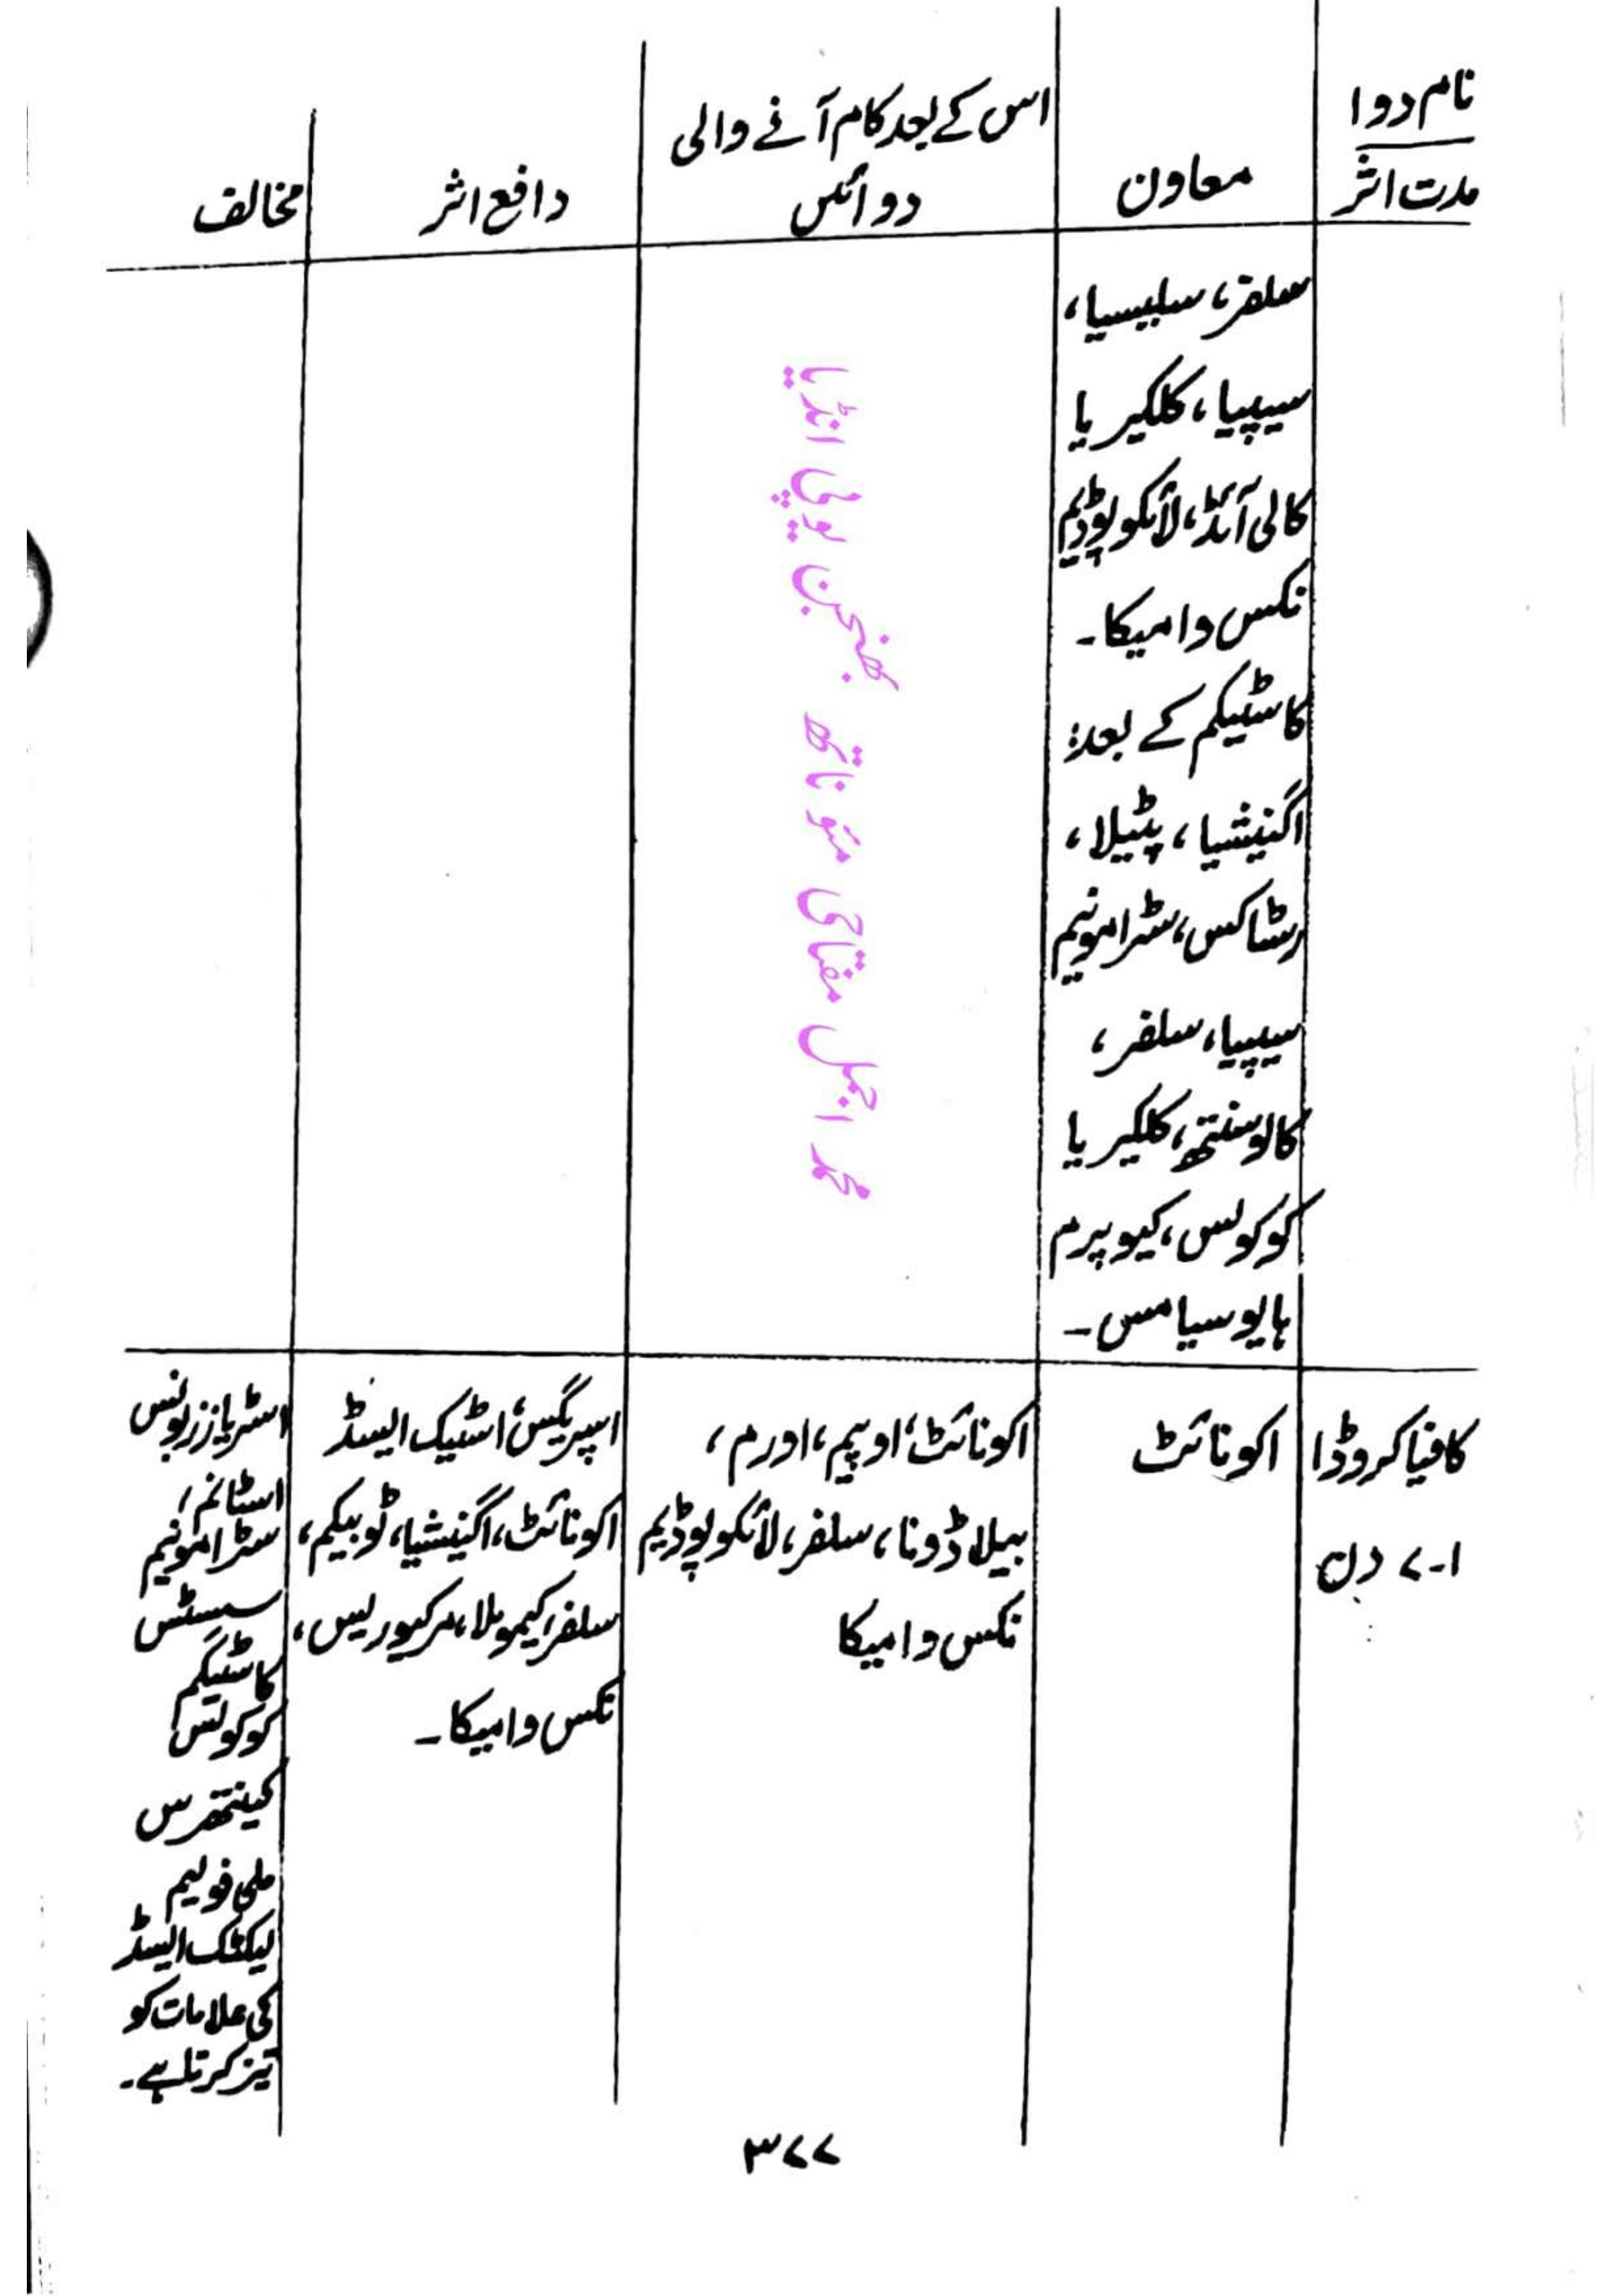 نام دوا
مدت اثر
معاون
اس کے بعد کام آنے والی
دوائیں
دافع اثر
مخالف
سلفر، سلیسیا،
سیپیا، کلکیریا
کالی آئڈ، لائکوپوڈیم
نکس وامیکا۔
کاسٹیکم کے بعد:
اگنیشیا، پٹیلا،
رسٹاکس، سٹرامونیم
سیپیا، سلفر،
کالوسنتھ، کلکیریا
کوکولس، کیوپرم
ہایوسیامس۔
محمد اجمل مفتاحی مئو ناتھ بھنجن یوپی انڈیا
کافیا کروڈا
۱-۷ دن
اکونائٹ
اکونائٹ، اوپیم، اورم،
بیلاڈونا، سلفر، لائکوپوڈیم
نکس وامیکا
اسپریگس، اسٹیک ایسڈ
اکونائٹ، اگنیشیا، ٹوبیکم،
سلفر، کیمومِلا، مرکیوریس،
نکس وامیکا۔
اسٹریازربونس
اسٹانم،
سٹرامونیم
سسٹس
کاسٹیکم
کوکولس
کینتھرس
ملی فولیم
لیکٹک ایسڈ
کی علامات کو
تیز کرتا ہے۔
۳۷۷